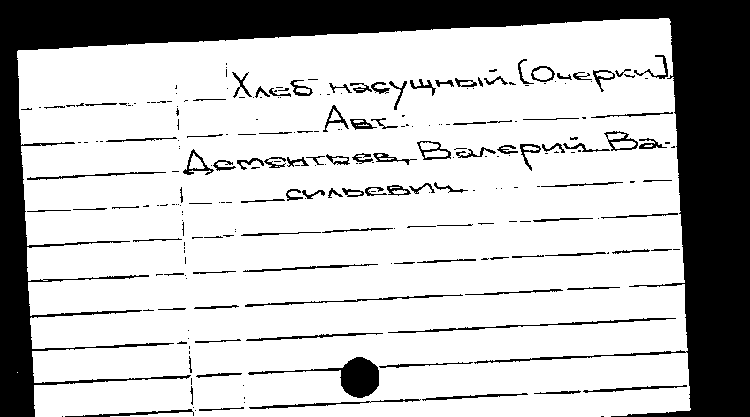 Хлеб насущный. [Очерки]
Авт.:
Дементьев, Валерий Ва-
сильевич